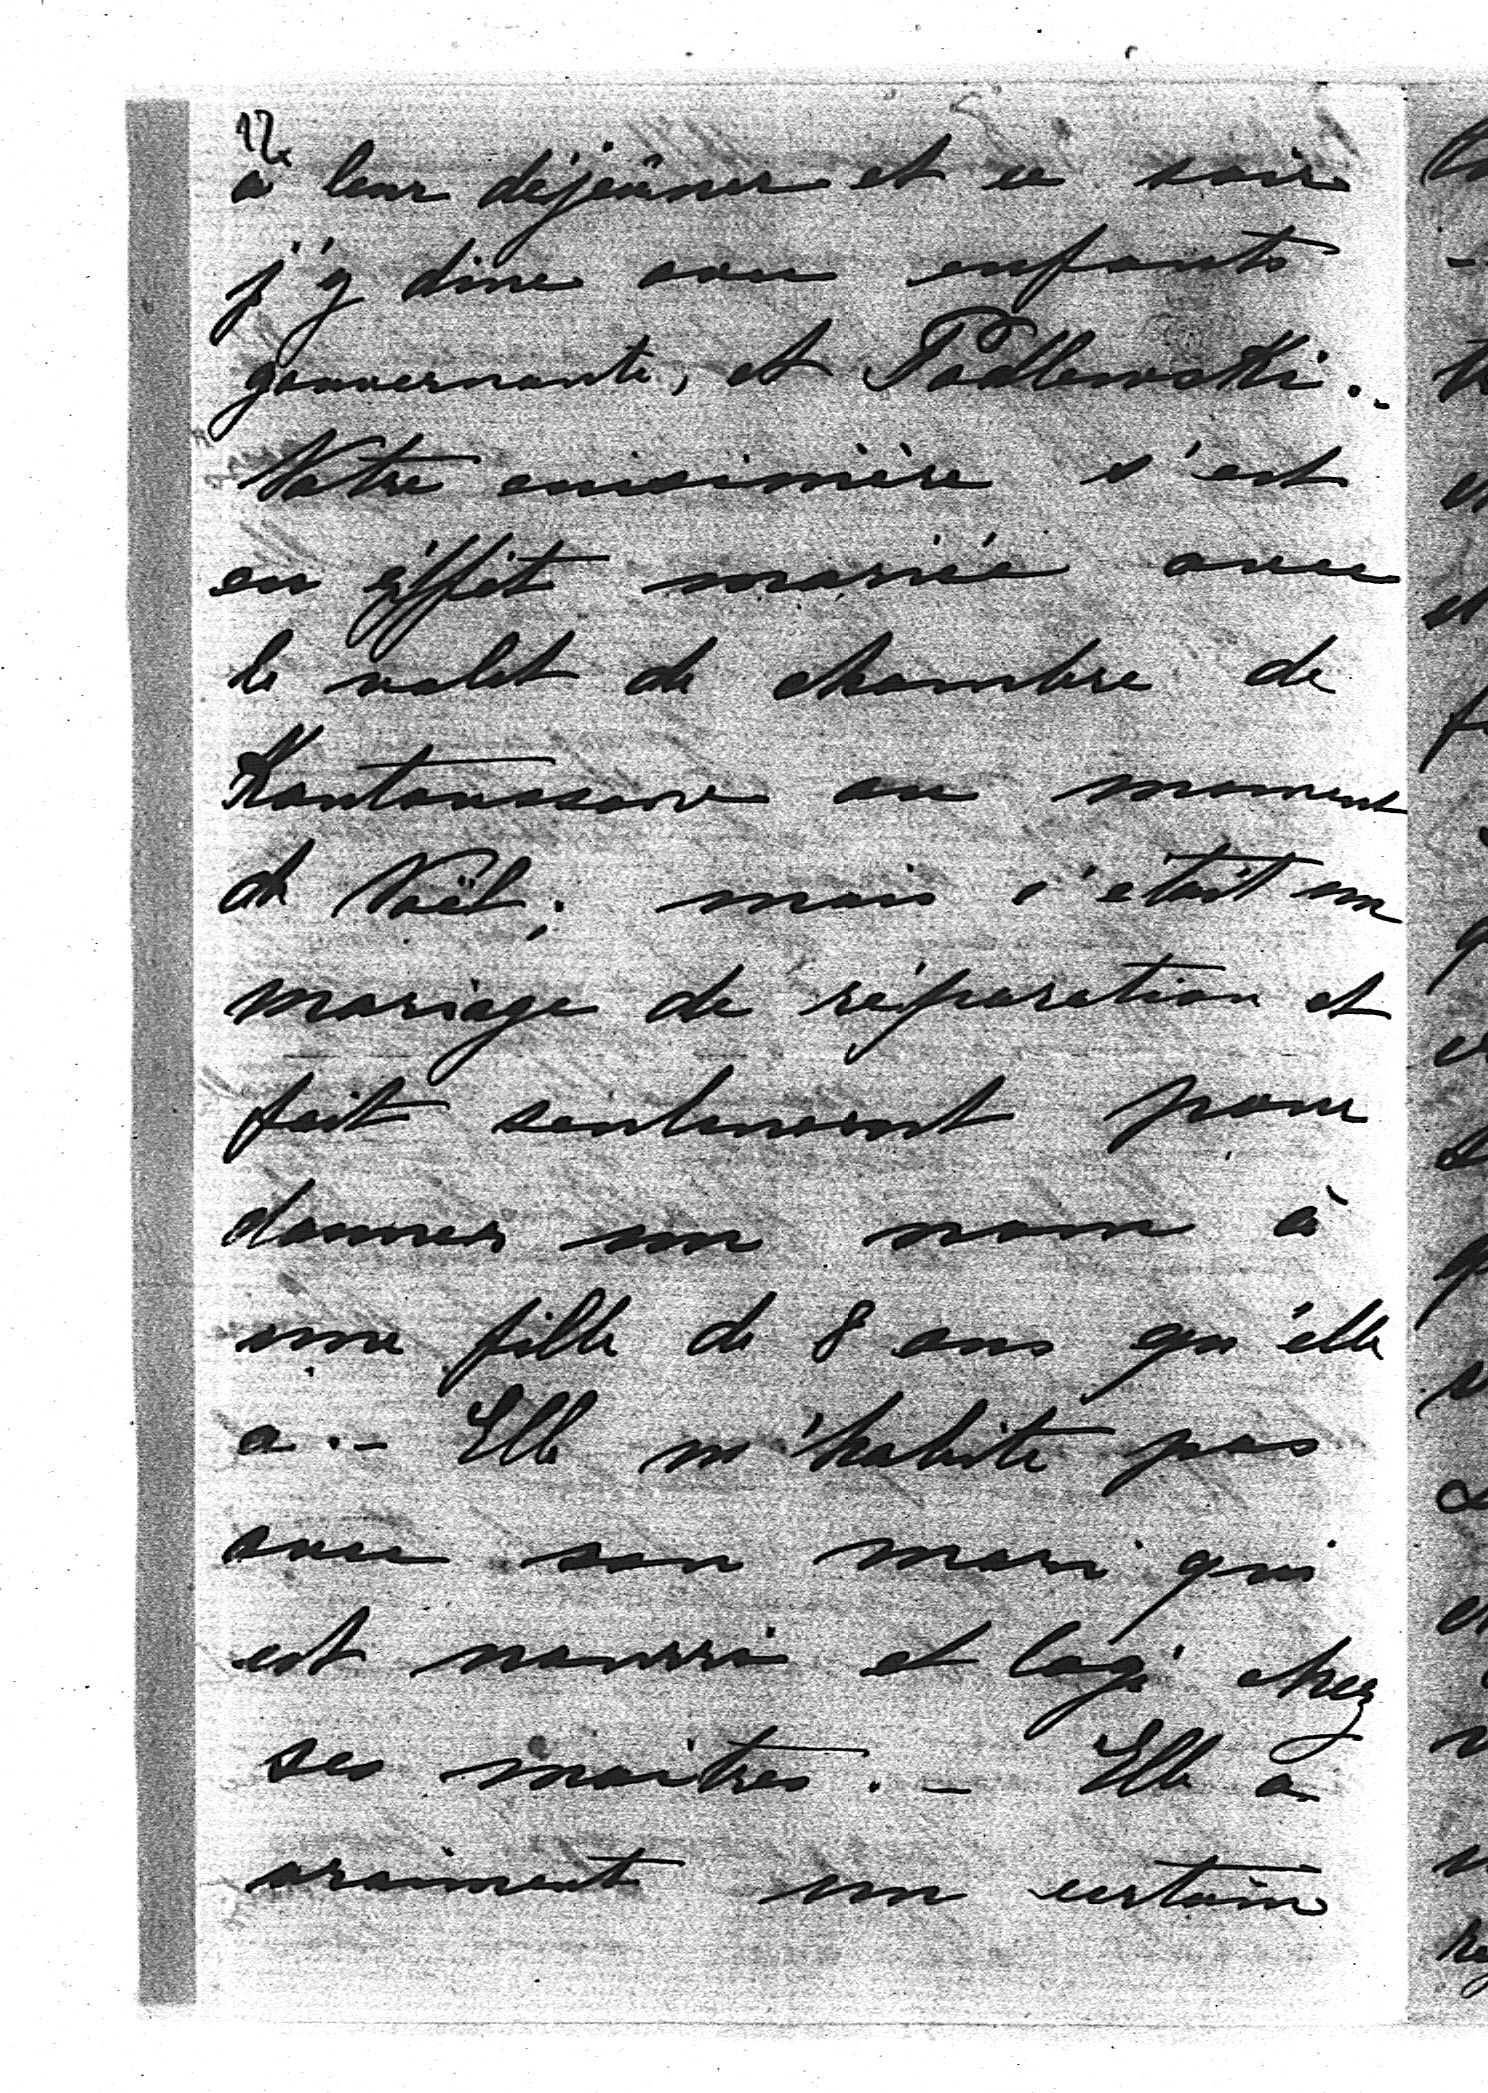 12.
à leur déjeûner et ce soir
j'y dine avec enfants
gouvernante, et Podlewski.-
Votre cuisinière s'est
en éffèt mariée avec
le valet de chambre de
au moment
de Noël; mais c'était un
mariage de réparation et
fait seulement pour
donner un nom à
une fille de 8 ans qu'elle
a.- Elle n'habite pas
avec son mari qui
est nourri et logé chez
ses maitres.- Elle a
vraiment un certain